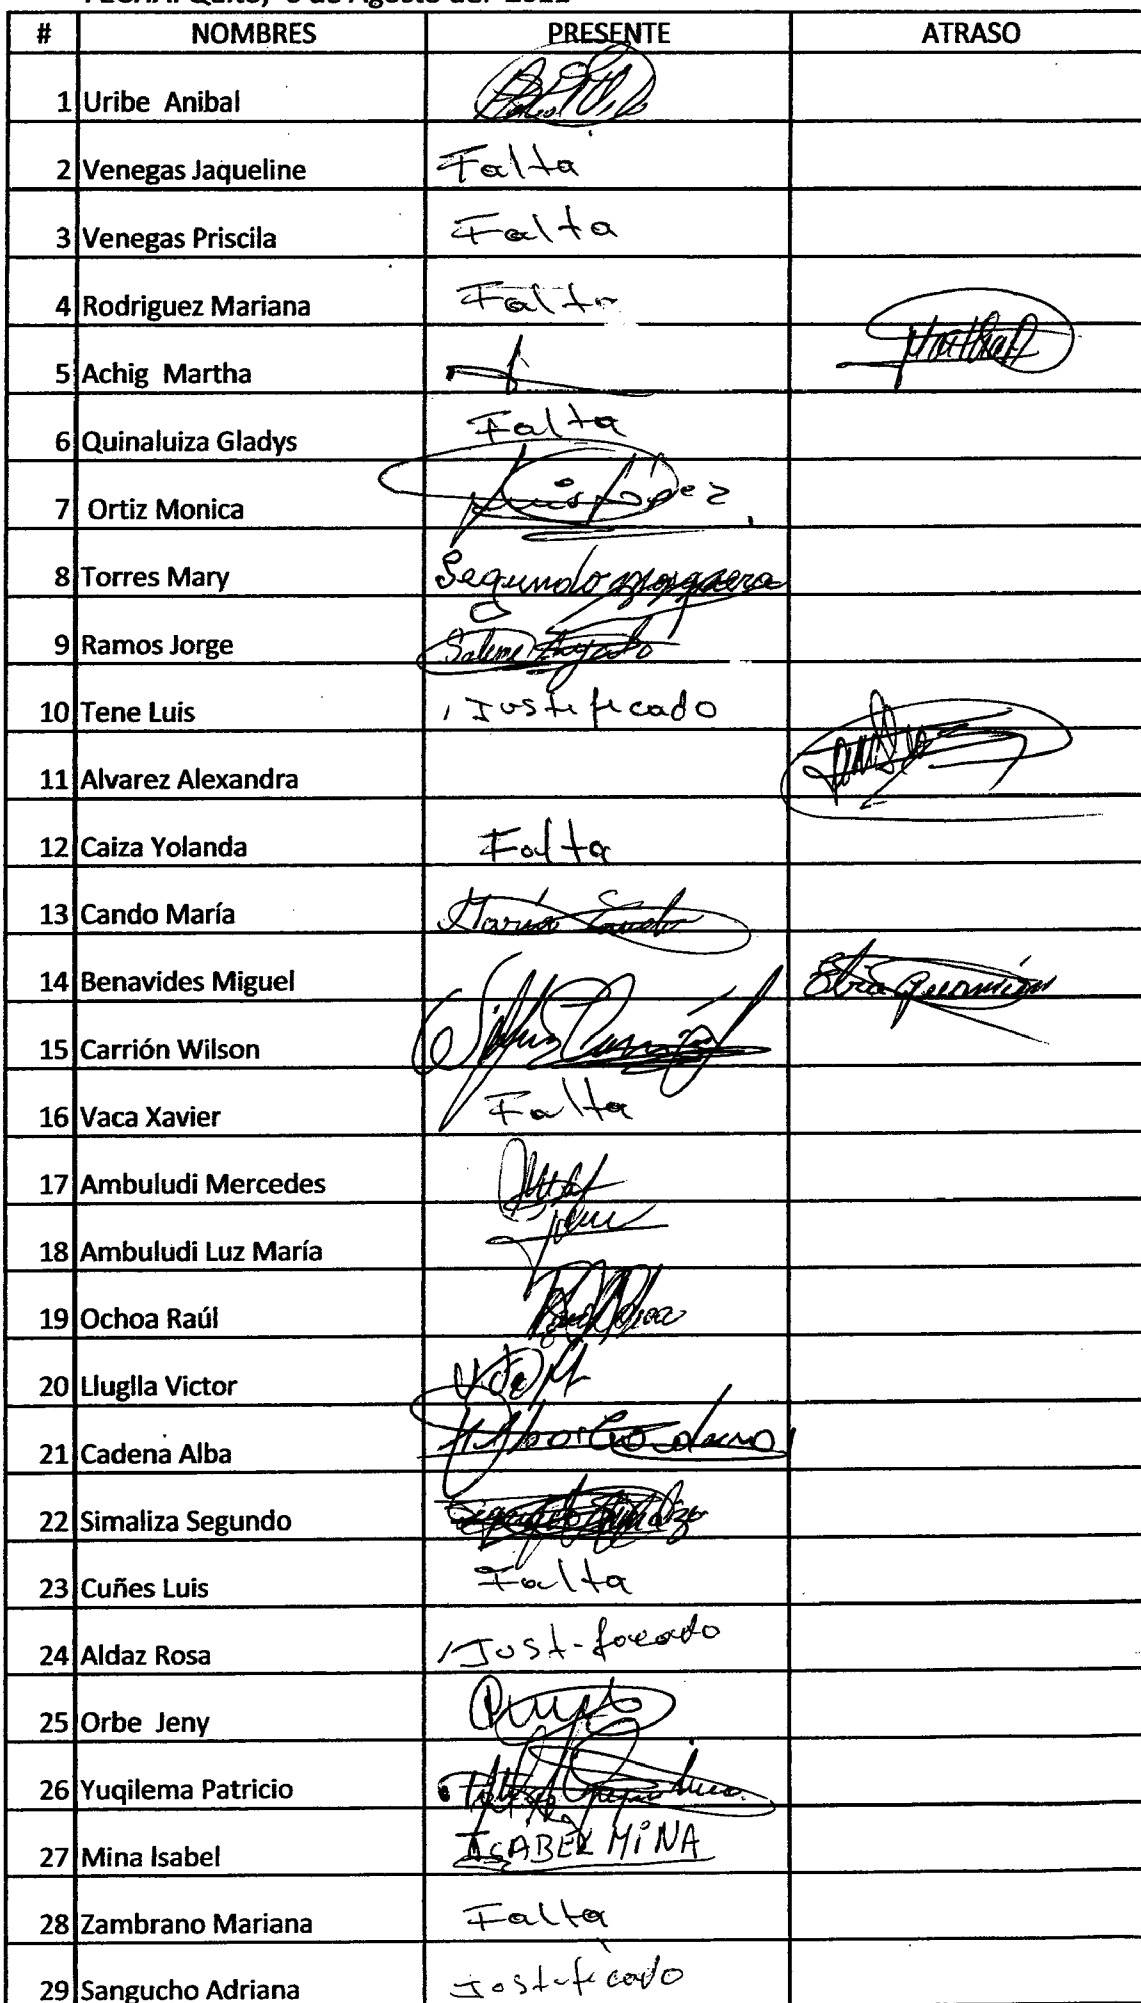 # NOMBRES PRESENTE ATRASO
1 Uribe Anibal
2 Venegas Jaqueline Falta
3 Venegas Priscila Falta
4 Rodriguez Mariana Falta
5 Achig Martha
6 Quinaluiza Gladys Falta
7 Ortiz Monica Luis López
8 Torres Mary Segundo
9 Ramos Jorge
10 Tene Luis Justificado
11 Alvarez Alexandra
12 Caiza Yolanda Falta
13 Cando María María
14 Benavides Miguel
15 Carrión Wilson
16 Vaca Xavier Falta
17 Ambuludi Mercedes
18 Ambuludi Luz María
19 Ochoa Raúl
20 Lluglla Victor
21 Cadena Alba
22 Simaliza Segundo
23 Cuñes Luis Falta
24 Aldaz Rosa Justificado
25 Orbe Jeny
26 Yuqilema Patricio
27 Mina Isabel ISABEL MiNA
28 Zambrano Mariana Falta
29 Sangucho Adriana Justificado